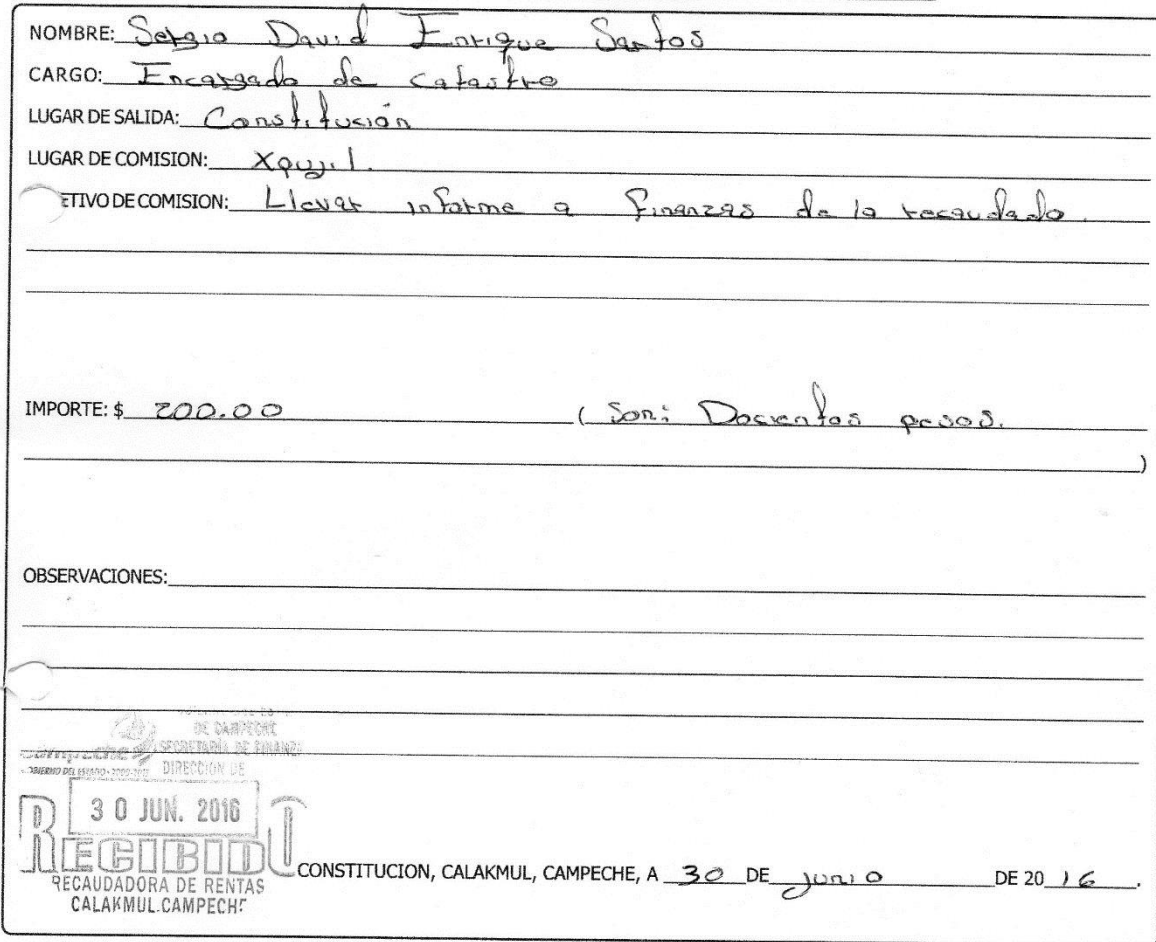 NOMBRE: Sergio David Enrique Santos
CARGO: Encargado de catastro
LUGAR DE SALIDA: Constitución
LUGAR DE COMISION: Xpujil.
ETIVO DE COMISION: Llevar informe a finanzas de lo recaudado.
IMPORTE: $ 200.00 ( Son: Docientos pesos.
)
OBSERVACIONES:
DE CAMPECHE
SECRETARÍA DE FINANZ
DIRECCION DE
30 JUN. 2016
RECIBIDO
RECAUDADORA DE RENTAS
CALAKMUL.CAMPECHE
CONSTITUCION, CALAKMUL, CAMPECHE, A 30 DE junio DE 20 16.